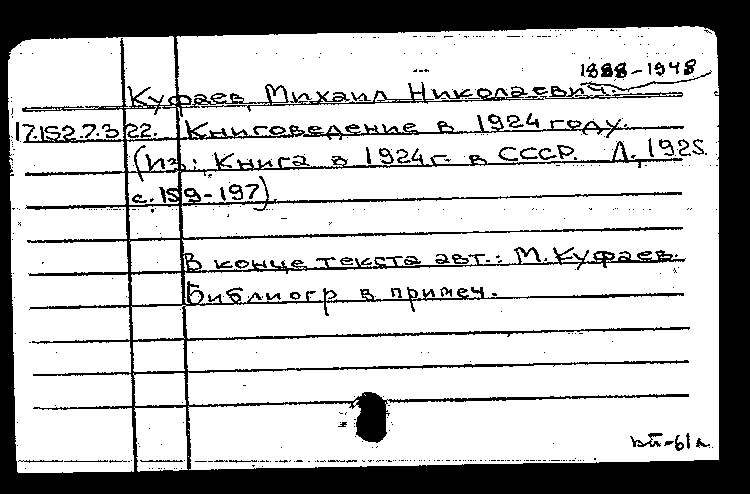 1888-1948
Куфаев, Михаил Николаевич.
17.152.7.3 22. Книговедение в 1924 году.
(Из: Книга в 1924 г. в СССР. Л., 1925
с. 159-197).
В конце текста авт.: М. Куфаев.
Библиогр в примеч.